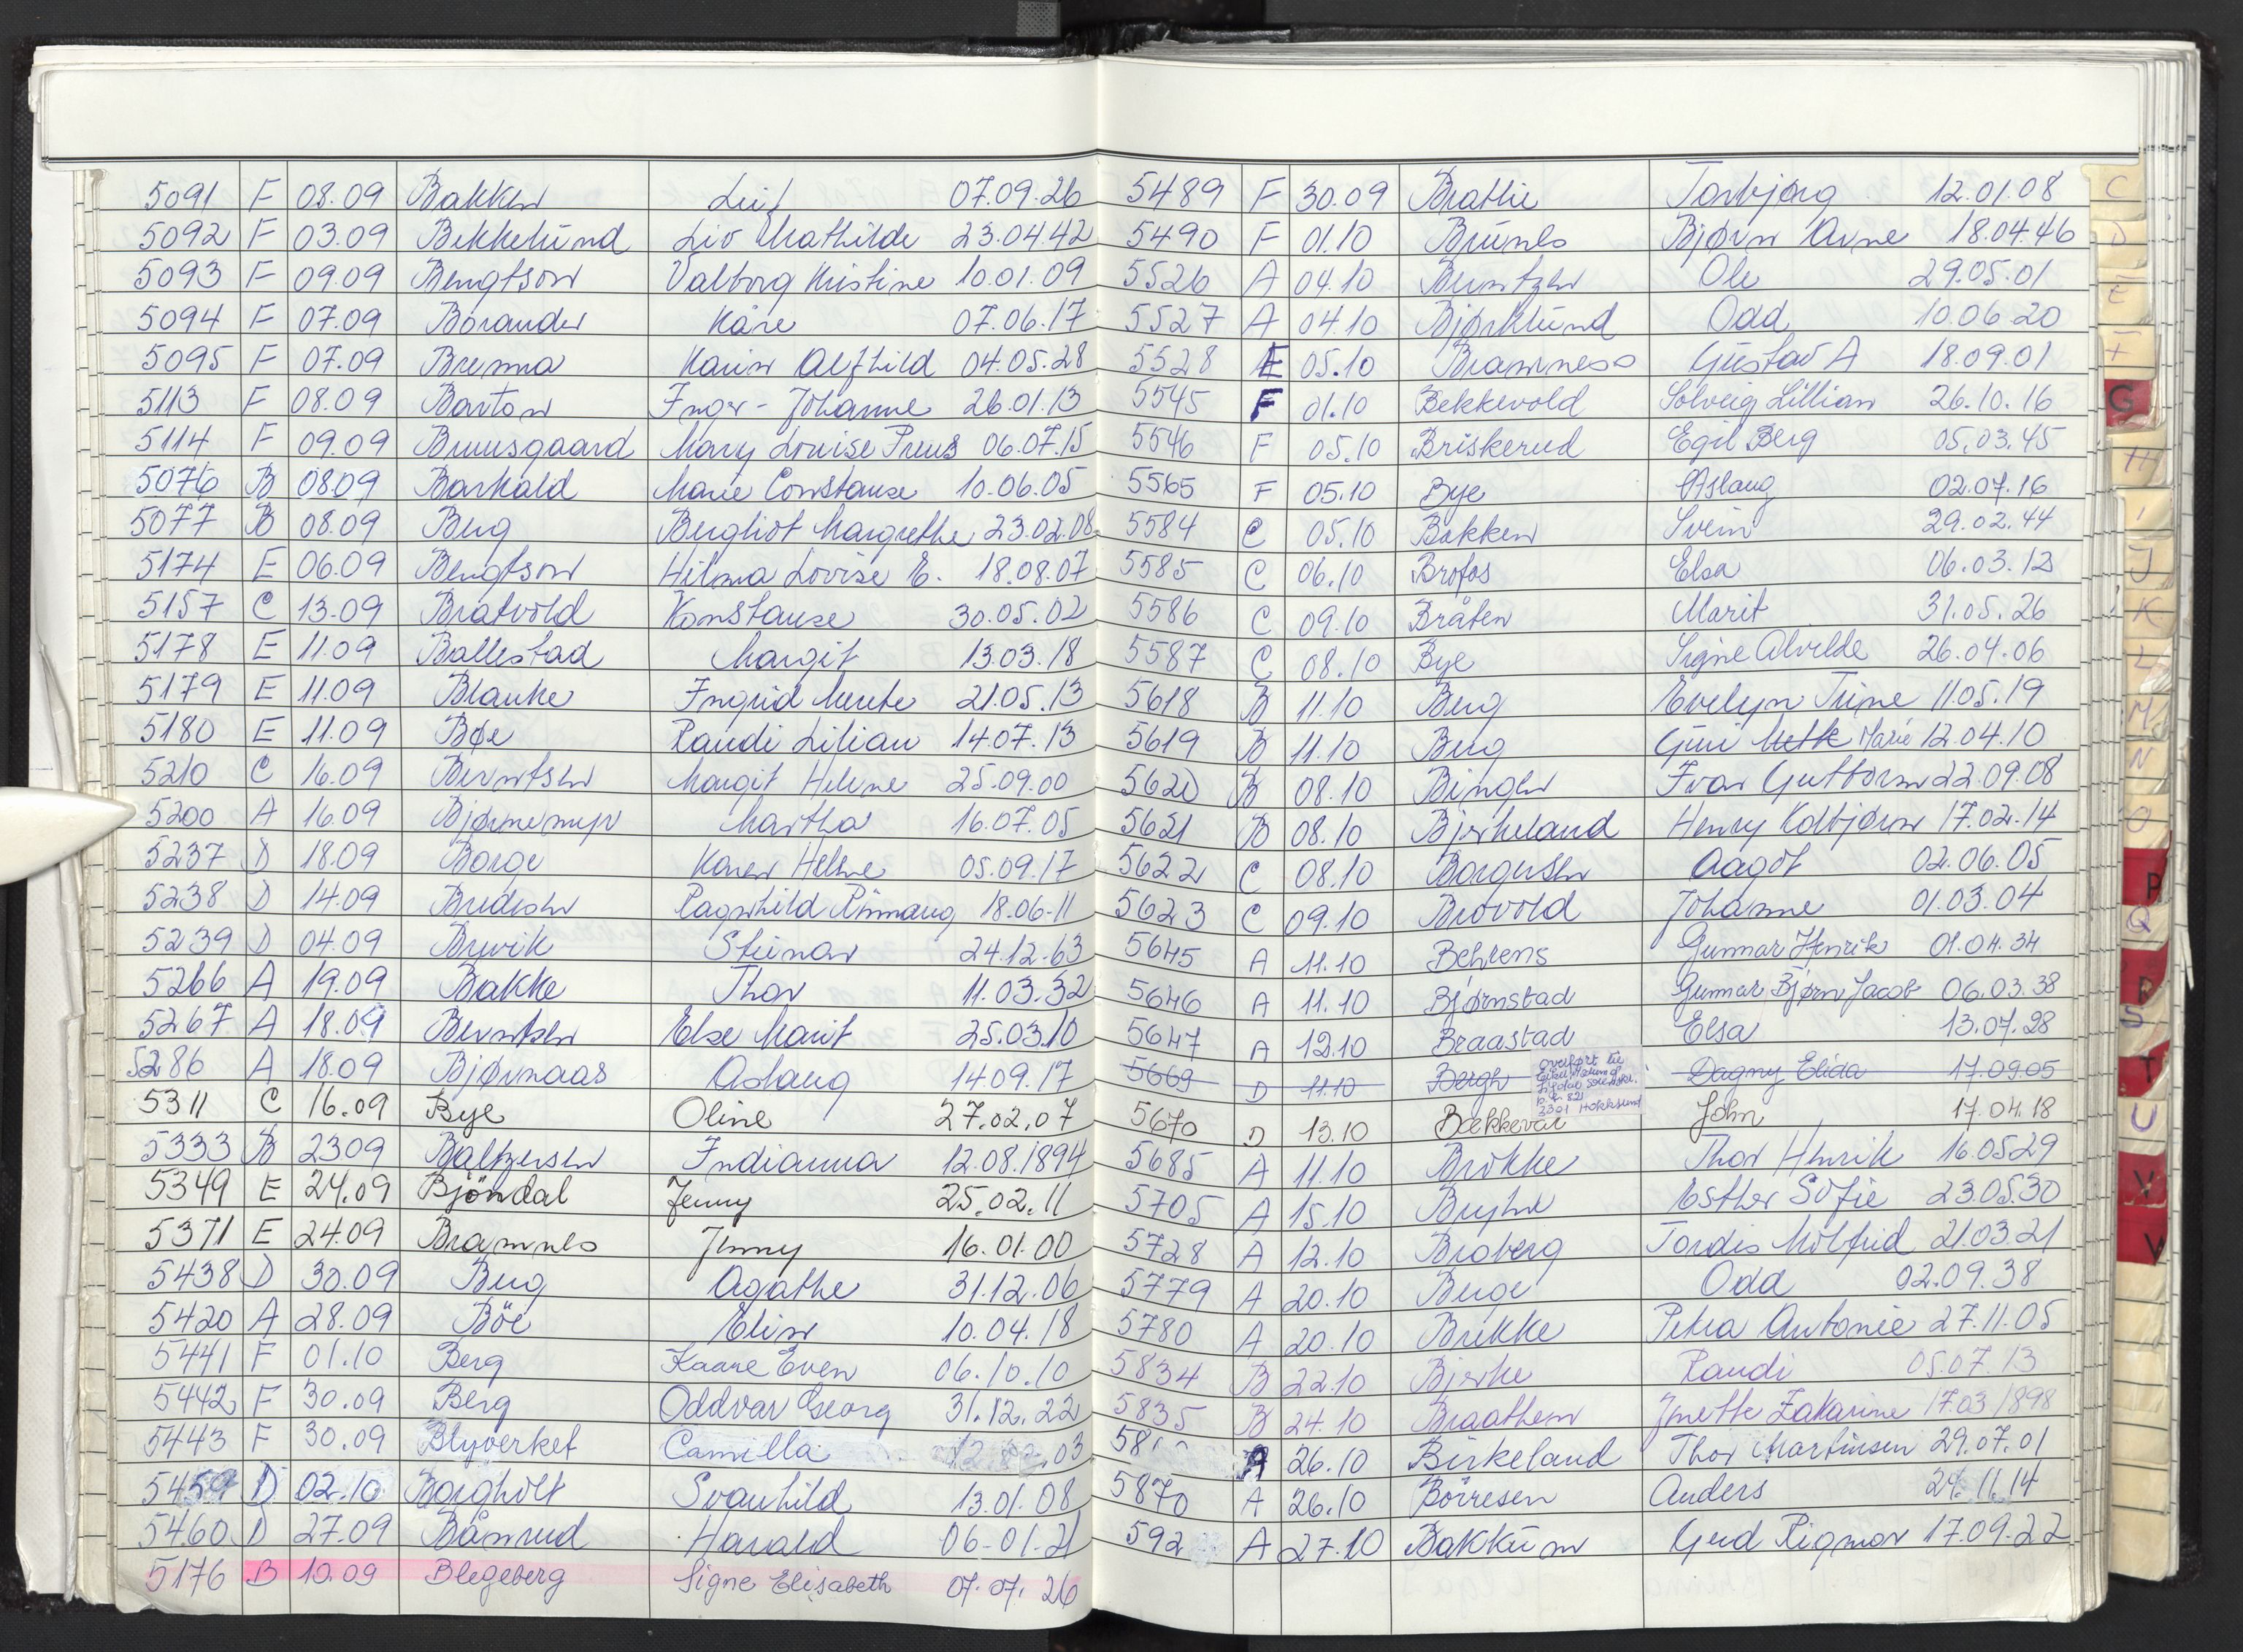 5091 F 08.09 Bakken Leif 07.09.26
5092 F 03.09 Bekkelund Liv Mathilde 23.04.42
5093 F 09.09 Bengtson Valborg Kristine 10.01.09
5094 F 07.09 Borander Kåre 07.06.17
5095 F 07.09 Brenna Karin Alfhild 04.05.28
5113 F 08.09 Barton Inger-Johanne 26.01.13
5114 F 09.09 Bruusgaard Mary Louise Preus 06.07.15
5076 B 08.09 Barkald Marie Constanse 10.06.05
5077 B 08.09 Berg Bergliot Margrethe 23.02.08
5174 E 06.09 Bengtson Hilma Lovise E. 18.08.07
5157 C 13.09 Bratvold Konstanse 30.05.02
5178 E 11.09 Ballestad Margit 13.03.18
5179 E 11.09 Blanke Ingrid Merete 21.05.13
5180 E 11.09 Bøe Randi Lilian 14.07.13
5210 C 16.09 Berntsen Margit Helene 25.09.00
5200 A 16.09 Bjørnemyr Martha 16.07.05
5237 D 18.09 Borge Karen Helene 05.09.17
5238 D 14.09 Bredesen Ragnhild Rinnaug 18.06-11
5239 D 04.09 Brevik Steinar 24.12.63
5266 A 19.09 Bakke Thor 11.03.32
5267 A 18.09 Berntsen Else Marit 25.03.10
5286 A 18.09 Bjørnaas Aslaug 14.09.17
5311 C 16.09 Bye Oline 27.02.07
5333 B 2309 Baltzersen Indianna 12.08.1894
5349 E 24.09 Bjöndal Jenny 25.02.11
5371 E 24.09 Bramnes Jenny 16.01.00
5438 D 30.09 Berg Agathe 31.12.06
5420 A 28.09 Böe Elin 10.04.18
5441 F 01.10 Berg Kaare Even 06.10.10
5442 F 30.09 Berg Oddvar Georg 31.12.22
5443 F 30.09 Blyverket Camilla 12.02.03
5459 D 02.10 Borgholt Svanhild 13.01.08
5460 D 27.09 Bånrud Harald 06-01.21
5176 B 10.09 Blegeberg Signe Elisabeth 07.07.26
5489 F 30.09 Brattlie Torbjørg 12.01.08
5490 F 01.10 Brunes Bjørn Arne 18.04.46
5526 A 04.10 Berntzen Ole 29.05.01
5527 A 04.10 Bjørklund Odd 10.06.20
5528 E 05.10 Bramness Gustav A 18.09.01
5545 F 01.10 Bekkevold Solveig Lillian 26.10.16
5546 F 05.10 Briskerud Egil Berg 05.03.45
5565 F 05.10 Bye Aslaug 02.07.16
5584 C 05.10 Bakken Svein 29.02.44
5585 C 06.10 Brofos Elsa 06.03.12
5586 C 09.10 Bråten Marit 31.05.26
5587 C 08.10 Bye Signe Alvilde 26.04.06
5618 B 11.10 Berg Evelyn Trine 11.05.19
5619 B 11.10 Berg Guri Mette Marie 12.04.10
5620 B 08.10 Bingen Ivar Guttorm 22.09.08
5621 B 08.10 Bjerkeland Henry Kolbjørn 17.02.14
5622 C 08.10 Borgersen Aagot 02.06.05
5623 C 09.10 Brovold Johanne 01.03.04
5645 A 11.10 Behrens Gunnar Henrik 01.04.34
5646 A 11.10 Bjørnstad Gunnar Bjørn Jacob 06.03.38
5647 A 12.10 Braastad Elsa 13.07.28
5669 D 11.10 Bergh Dagny Elida 17.09.05
overført til
Eiker
3301 Hokksund
5670 D 13.10 Bækkevar John 17.04.18
5685 A 11.10 Brokke Thor Henrik 16.0529
5705 A 15.10 Bryhn Esther Sofie 23.05.30
5728 A 12.10 Broberg Tordis Molfrid 21.03.21
5779 A 20.10 Berge Odd 02.09.38
5780 A 20.10 Brekke Petra Antonie 27.11.05
5834 B 22.10 Bjerke Randi 05.07.13
5835 B 24.10 Braathen Jinette Zakarine 17.03.1898
58 A 26.10 Birkeland Thor Martinsen 29.07.01
5870 A 26.10 Börresen Anders 24.11.14
592 A 27.10 Bakkum Gerd Rigmor 17.09.22
C
D
E
F
G
H
I
J
K
L
M
N
O
P
Q
R
S
T
U
V